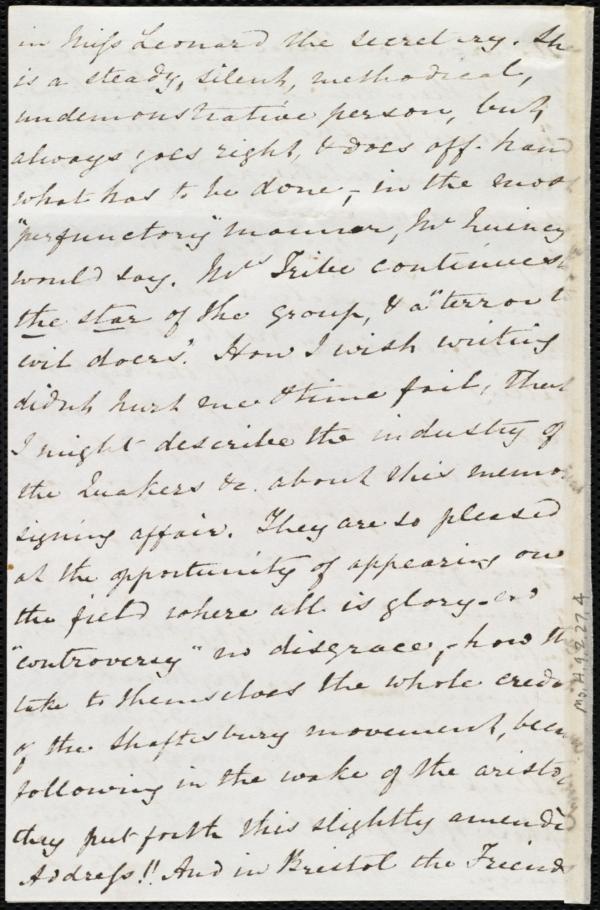 in Miss Leonard the secretary. She
is a steady, silent, methodical,
undemonstrative person, but,
always goes right, & does off-hand
what has to be done, - in the most
"perfunctory" manner, Mr Quincy
would say. Mrs Tribe continues
the star of the group, & a "terror to
evil doers". How I wish writing
didn't hurt me & time fail, that
I might describe the industry of
the Quakers &c. about this memo
signing affair. They are so pleased
at the opportunity of appearing on
the field where all is glory - and
"controversy" no disgrace, - how they
take to themselves the whole credit
of the Shaftesbury movement, because
following in the wake of the aristo
they put forth this slightly amended
Address!! And in Bristol the Friends
Ms. A 9.2.27.4